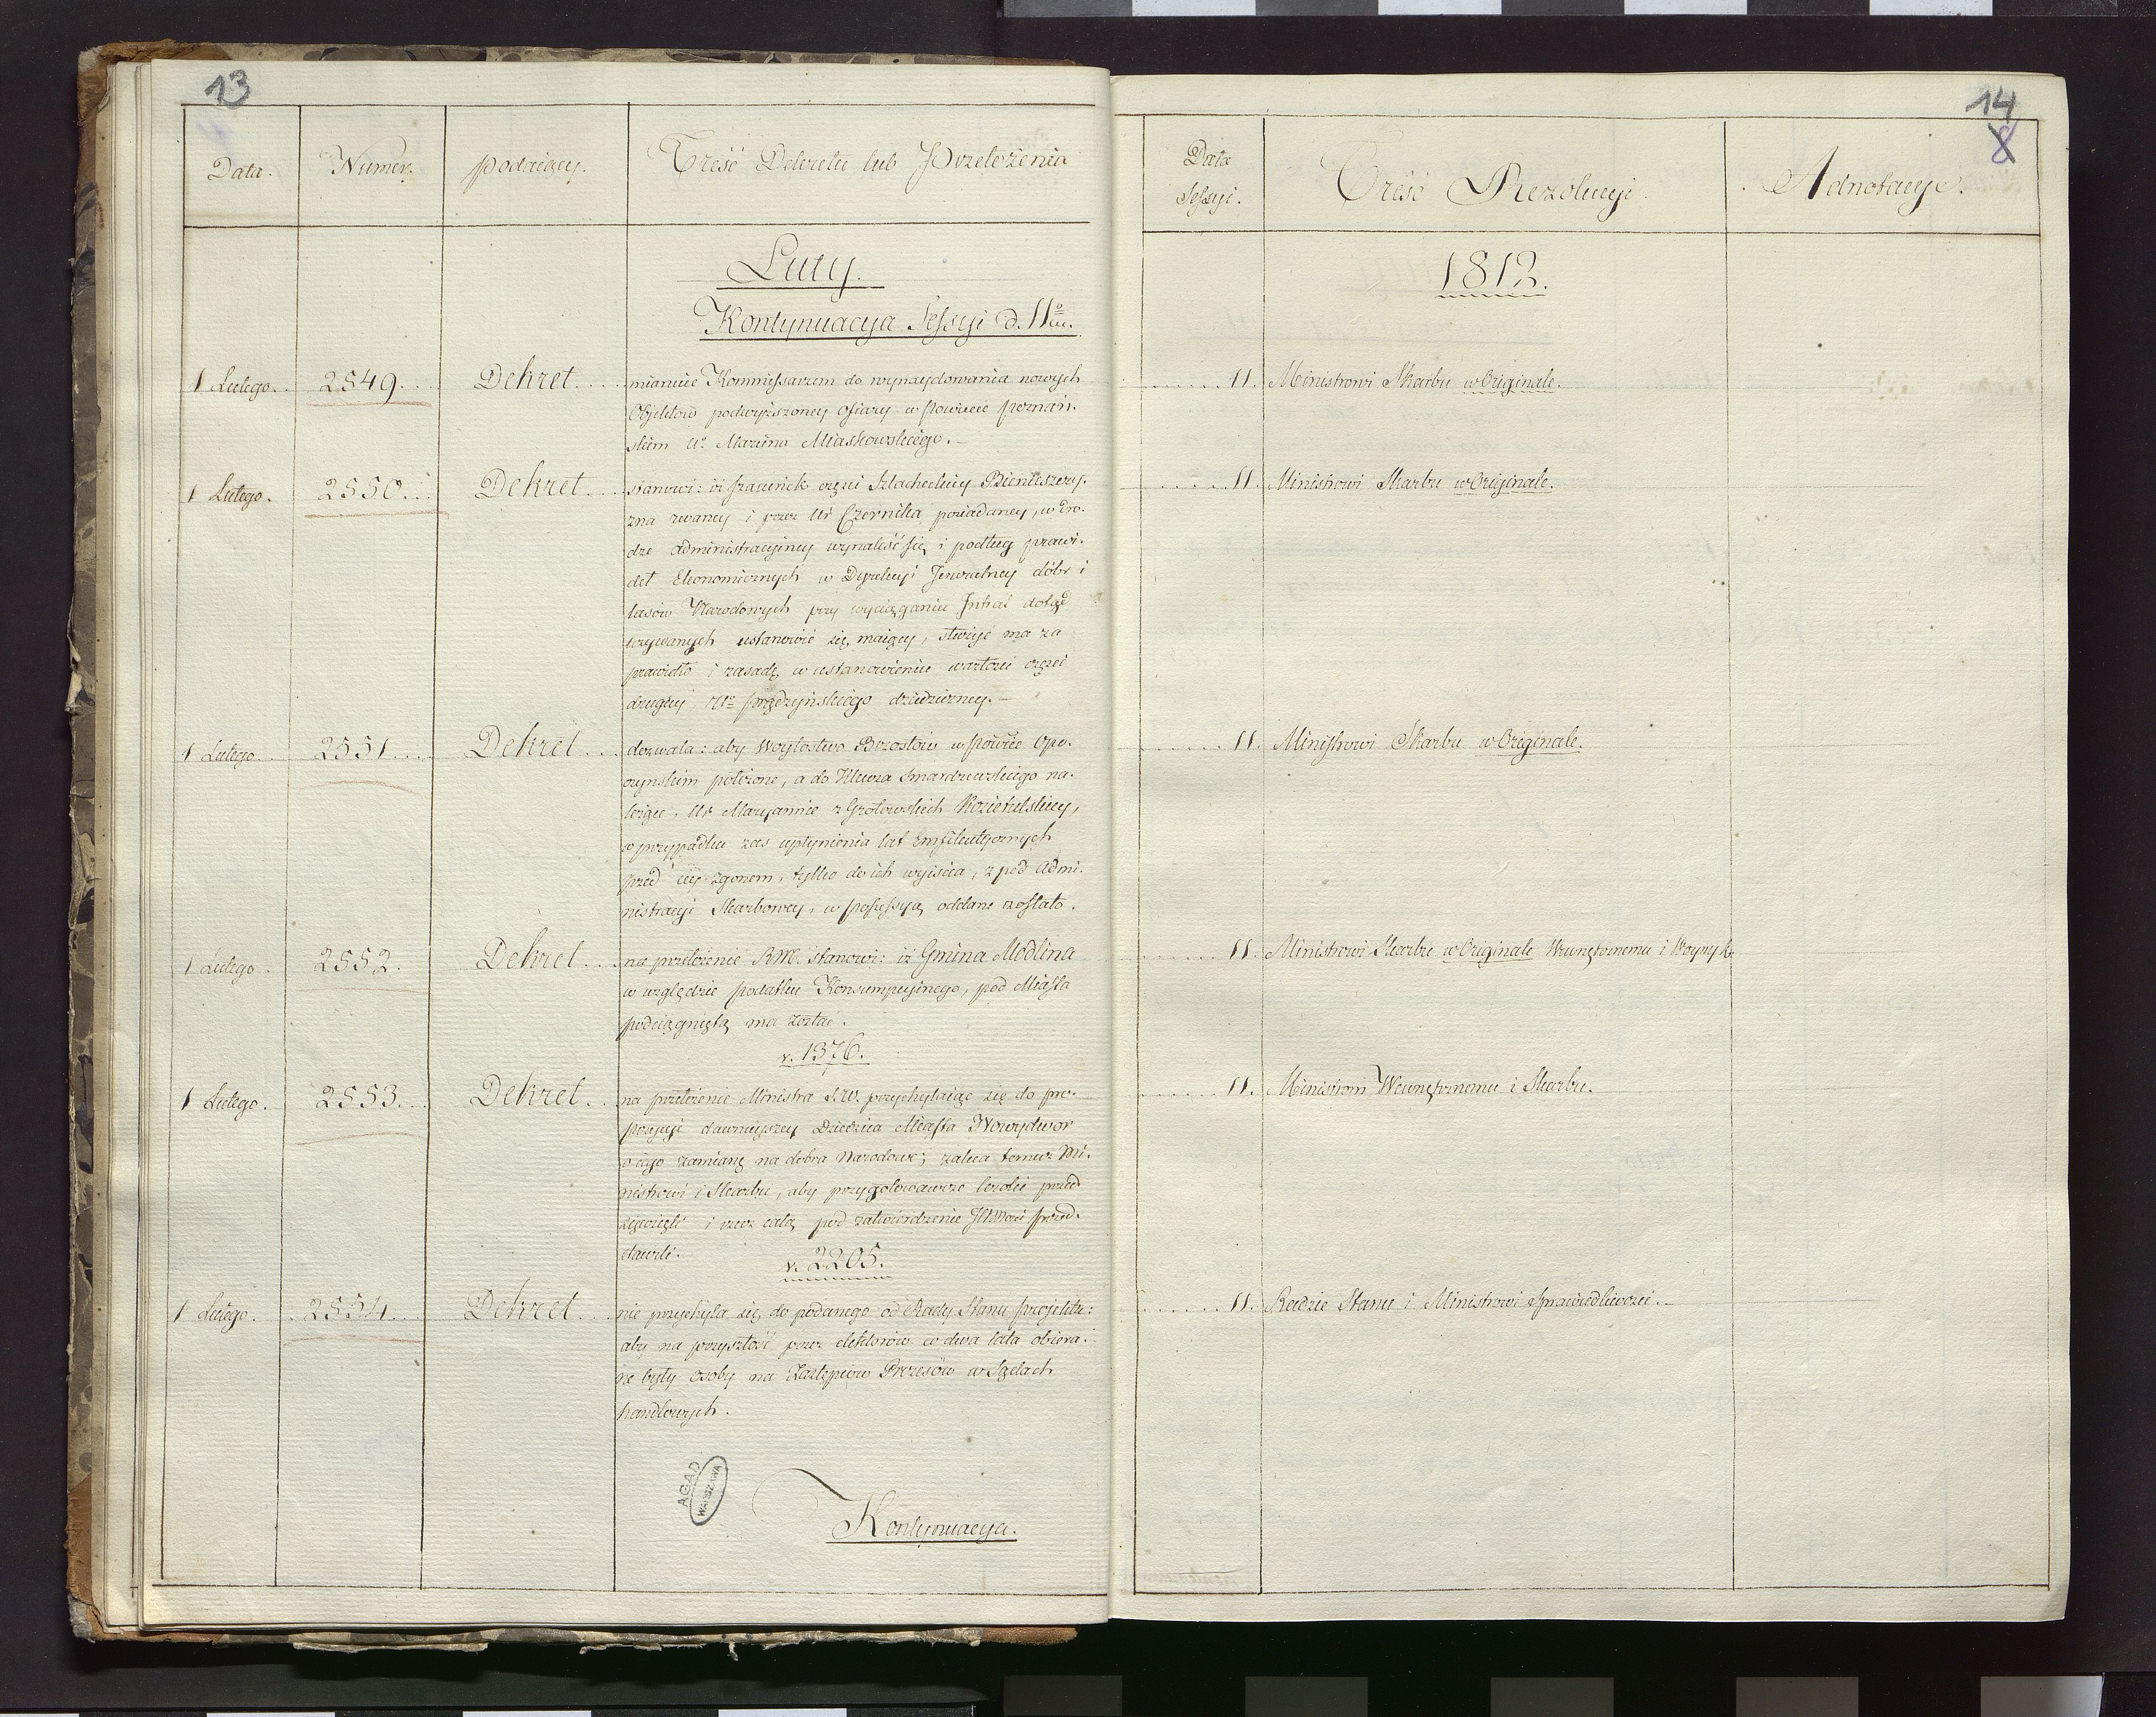 13
Data.
Numer.
Podaiący.
Treść Dekretu lub Przełożenia
Luty.
Kontynuacya Sessyi d. 11º
1 Lutego.. 2549.... Dekret.... mianuie Kommissarzem do wynaydowania nowych
Objektów podwyższoney ofiary w Powiecie Poznań-
skim Uº Marcina Miaskowskiego.—
1 Lutego. 2550... Dekret.... stanowi: iż szacunek części Szlacheckiey
zna zwaney i przez Ur Czernika posiadaney, w dro-
dze administracyiney wynaleść się i podług prawi-
deł Ekonomicznych w Dyrekcyi Jeneralney dóbr i
lasów Narodowych przy wyciąganiu Intrat dotąd
używanych ustanowić się maiący, służyć ma za
prawidło i zasadę w ustanowieniu wartości części
drugiey Uº Prądzyńskiego dziedziczney.—
1 Lutego.. 2551.... Dekret... dozwala: aby Woytostwo Brzostów w Powiecie Opo-
czynskim położone, a do Klucza Smardzewskiego na-
leżące, Ur Maryannie z Kozietulskiey,
w przypadku zas upłynienia lat Emfiteutycznych
przed iey zgonem, tylko do ich wyiścia, z pod Admi-
nistracyi Skarbowey, w possessyą oddane zostało.
1 Lutego. 2552. Dekret.... na przełożenie RM. stanowi: iż Gmina Modlina
w względzie podatku Konsumpcyinego, pod Miasta
podciągniętą ma zostać.
v. 1376.
1 Lutego. 2553.... Dekret... na przełożenie Ministra S.W. przychylaiąc się do pro-
pozycyi dawnieyszey Dziedzica Miasta Nowydwor
o iego zamianę na dobra Narodowe; zaleca temuż Mi-
nistrowi i Skarbu, aby przygotowawcze kroki przed
sięwzięli i rzecz całą pod zatwierdzenie JKMości przed-
stawili.
v. 2205.
1 Lutego. 2554.... Dekret.... nie przychyla się do podanego od Rady Stanu projektu:
aby na przyszłość przez elektorów co dwa lata obiera-
ne były osoby na Zastępców Prezesów w Sądach
handlowych.
AGAD
WARSZAWA
Kontynuacya.
14
8
Data
Sessyi.
Treść Rezolucyi
Adnotacye.
1812.
11. Ministrowi Skarbu w Originale.
11. Ministrowi Skarbu w Originale.
11. Ministrowi Skarbu w Originale.
11. Ministrowi Skarbu w Originale Wewnętrznemu i Woyny
11. Ministrom Wewnętrznemu i Skarbu.
11. Radzie Stanu i Ministrowi Sprawiedliwości.—